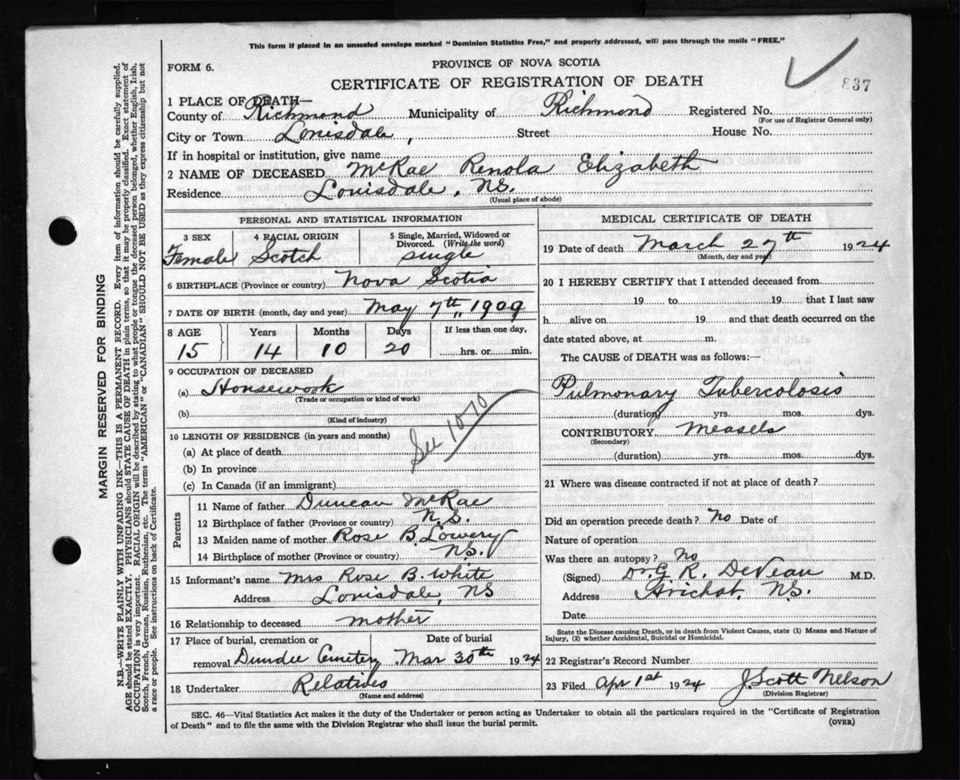 This form if placed in an unsealed envelope marked "Dominion Statistics Free," and properly addressed, will pass through the mails "FREE."
FORM 6.
PROVINCE OF NOVA SCOTIA
CERTIFICATE OF REGISTRATION OF DEATH
837
1 PLACE OF DEATH—
County of Richmond Municipality of Richmond Registered No.
(For use of Registrar General only)
City or Town Louisdale, Street House No.
If in hospital or institution, give name
2 NAME OF DECEASED McRae Renola Elizabeth
Residence Louisdale, N.S.
(Usual place of abode)
PERSONAL AND STATISTICAL INFORMATION
3 SEX 4 RACIAL ORIGIN 5 Single, Married, Widowed or Divorced. (Write the word)
Female Scotch single
6 BIRTHPLACE (Province or country) Nova Scotia
7 DATE OF BIRTH (month, day and year) May 7th, 1909
8 AGE Years Months Days If less than one day,
15 14 10 20 hrs. or min.
9 OCCUPATION OF DECEASED
(a) Housework
(Trade or occupation or kind of work)
(b)
(Kind of industry)
See 1070
10 LENGTH OF RESIDENCE (in years and months)
(a) At place of death
(b) In province
(c) In Canada (if an immigrant)
Parents
11 Name of father Duncan McRae
12 Birthplace of father (Province or country) N.S.
13 Maiden name of mother Rose B. Lowery
14 Birthplace of mother (Province or country) N.S.
15 Informant's name Mrs Rose B. White
Address Louisdale, NS
16 Relationship to deceased mother
17 Place of burial, cremation or removal Dundee Cemetery Date of burial Mar 30th 1924
18 Undertaker Relatives
(Name and address)
MEDICAL CERTIFICATE OF DEATH
19 Date of death March 27th 1924
(Month, day and year)
20 I HEREBY CERTIFY that I attended deceased from
19 to 19 that I last saw
h alive on 19 and that death occurred on the
date stated above, at m.
The CAUSE of DEATH was as follows:—
Pulmonary Tubercolosis
(duration) yrs. mos. dys.
CONTRIBUTORY Measels
(Secondary)
(duration) yrs. mos. dys.
21 Where was disease contracted if not at place of death?
Did an operation precede death? No Date of
Nature of operation
Was there an autopsy? No
(Signed) Dr. G. R. DeVeau M.D.
Address Arichat, N.S.
Date
State the Disease causing Death, or in death from Violent Causes, state (1) Means and Nature of Injury, (2) whether Accidental, Suicidal or Homicidal.
22 Registrar's Record Number
23 Filed Apr 1st 1924 J. Scott Nelson
(Division Registrar)
SEC. 46—Vital Statistics Act makes it the duty of the Undertaker or person acting as Undertaker to obtain all the particulars required in the "Certificate of Registration
of Death" and to file the same with the Division Registrar who shall issue the burial permit. (OVER)
MARGIN RESERVED FOR BINDING
N.B.—WRITE PLAINLY WITH UNFADING INK—THIS IS A PERMANENT RECORD. Every item of information should be carefully supplied.
AGE should be stated EXACTLY. PHYSICIANS should STATE CAUSE OF DEATH in plain terms, so that it may be properly classified. Exact statement of
OCCUPATION is very important. RACIAL ORIGIN will be described by stating to what people or tongue the deceased person belonged, whether English, Irish,
Scotch, French, German, Russian, Ruthenian, etc. The terms "AMERICAN" or "CANADIAN" SHOULD NOT BE USED as they express citizenship but not
a race or people. See instructions on back of Certificate.